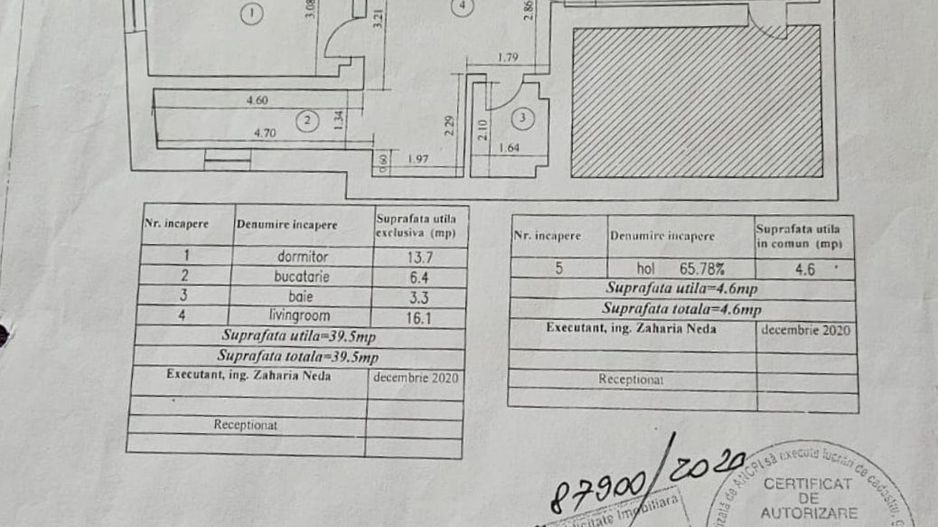 1
3.08
3.21
4
2.86
1.79
4.60
2
1.34
4.70
2.29
2.10
3
1.64
0.60
1.97
Nr. incapere Denumire incapere Suprafata utila exclusiva (mp)
1 dormitor 13.7
2 bucatarie 6.4
3 baie 3.3
4 livingroom 16.1
Suprafata utila=39.5mp
Suprafata totala=39.5mp
Executant, ing. Zaharia Neda decembrie 2020
Receptionat
Nr. incapere Denumire incapere Suprafata utila in comun (mp)
5 hol 65.78% 4.6
Suprafata utila=4.6mp
Suprafata totala=4.6mp
Executant, ing. Zaharia Neda decembrie 2020
Receptionat
87900/2020
Imobiliara
de ANCPI să execute lucrări de cadastru
CERTIFICAT
DE
AUTORIZARE